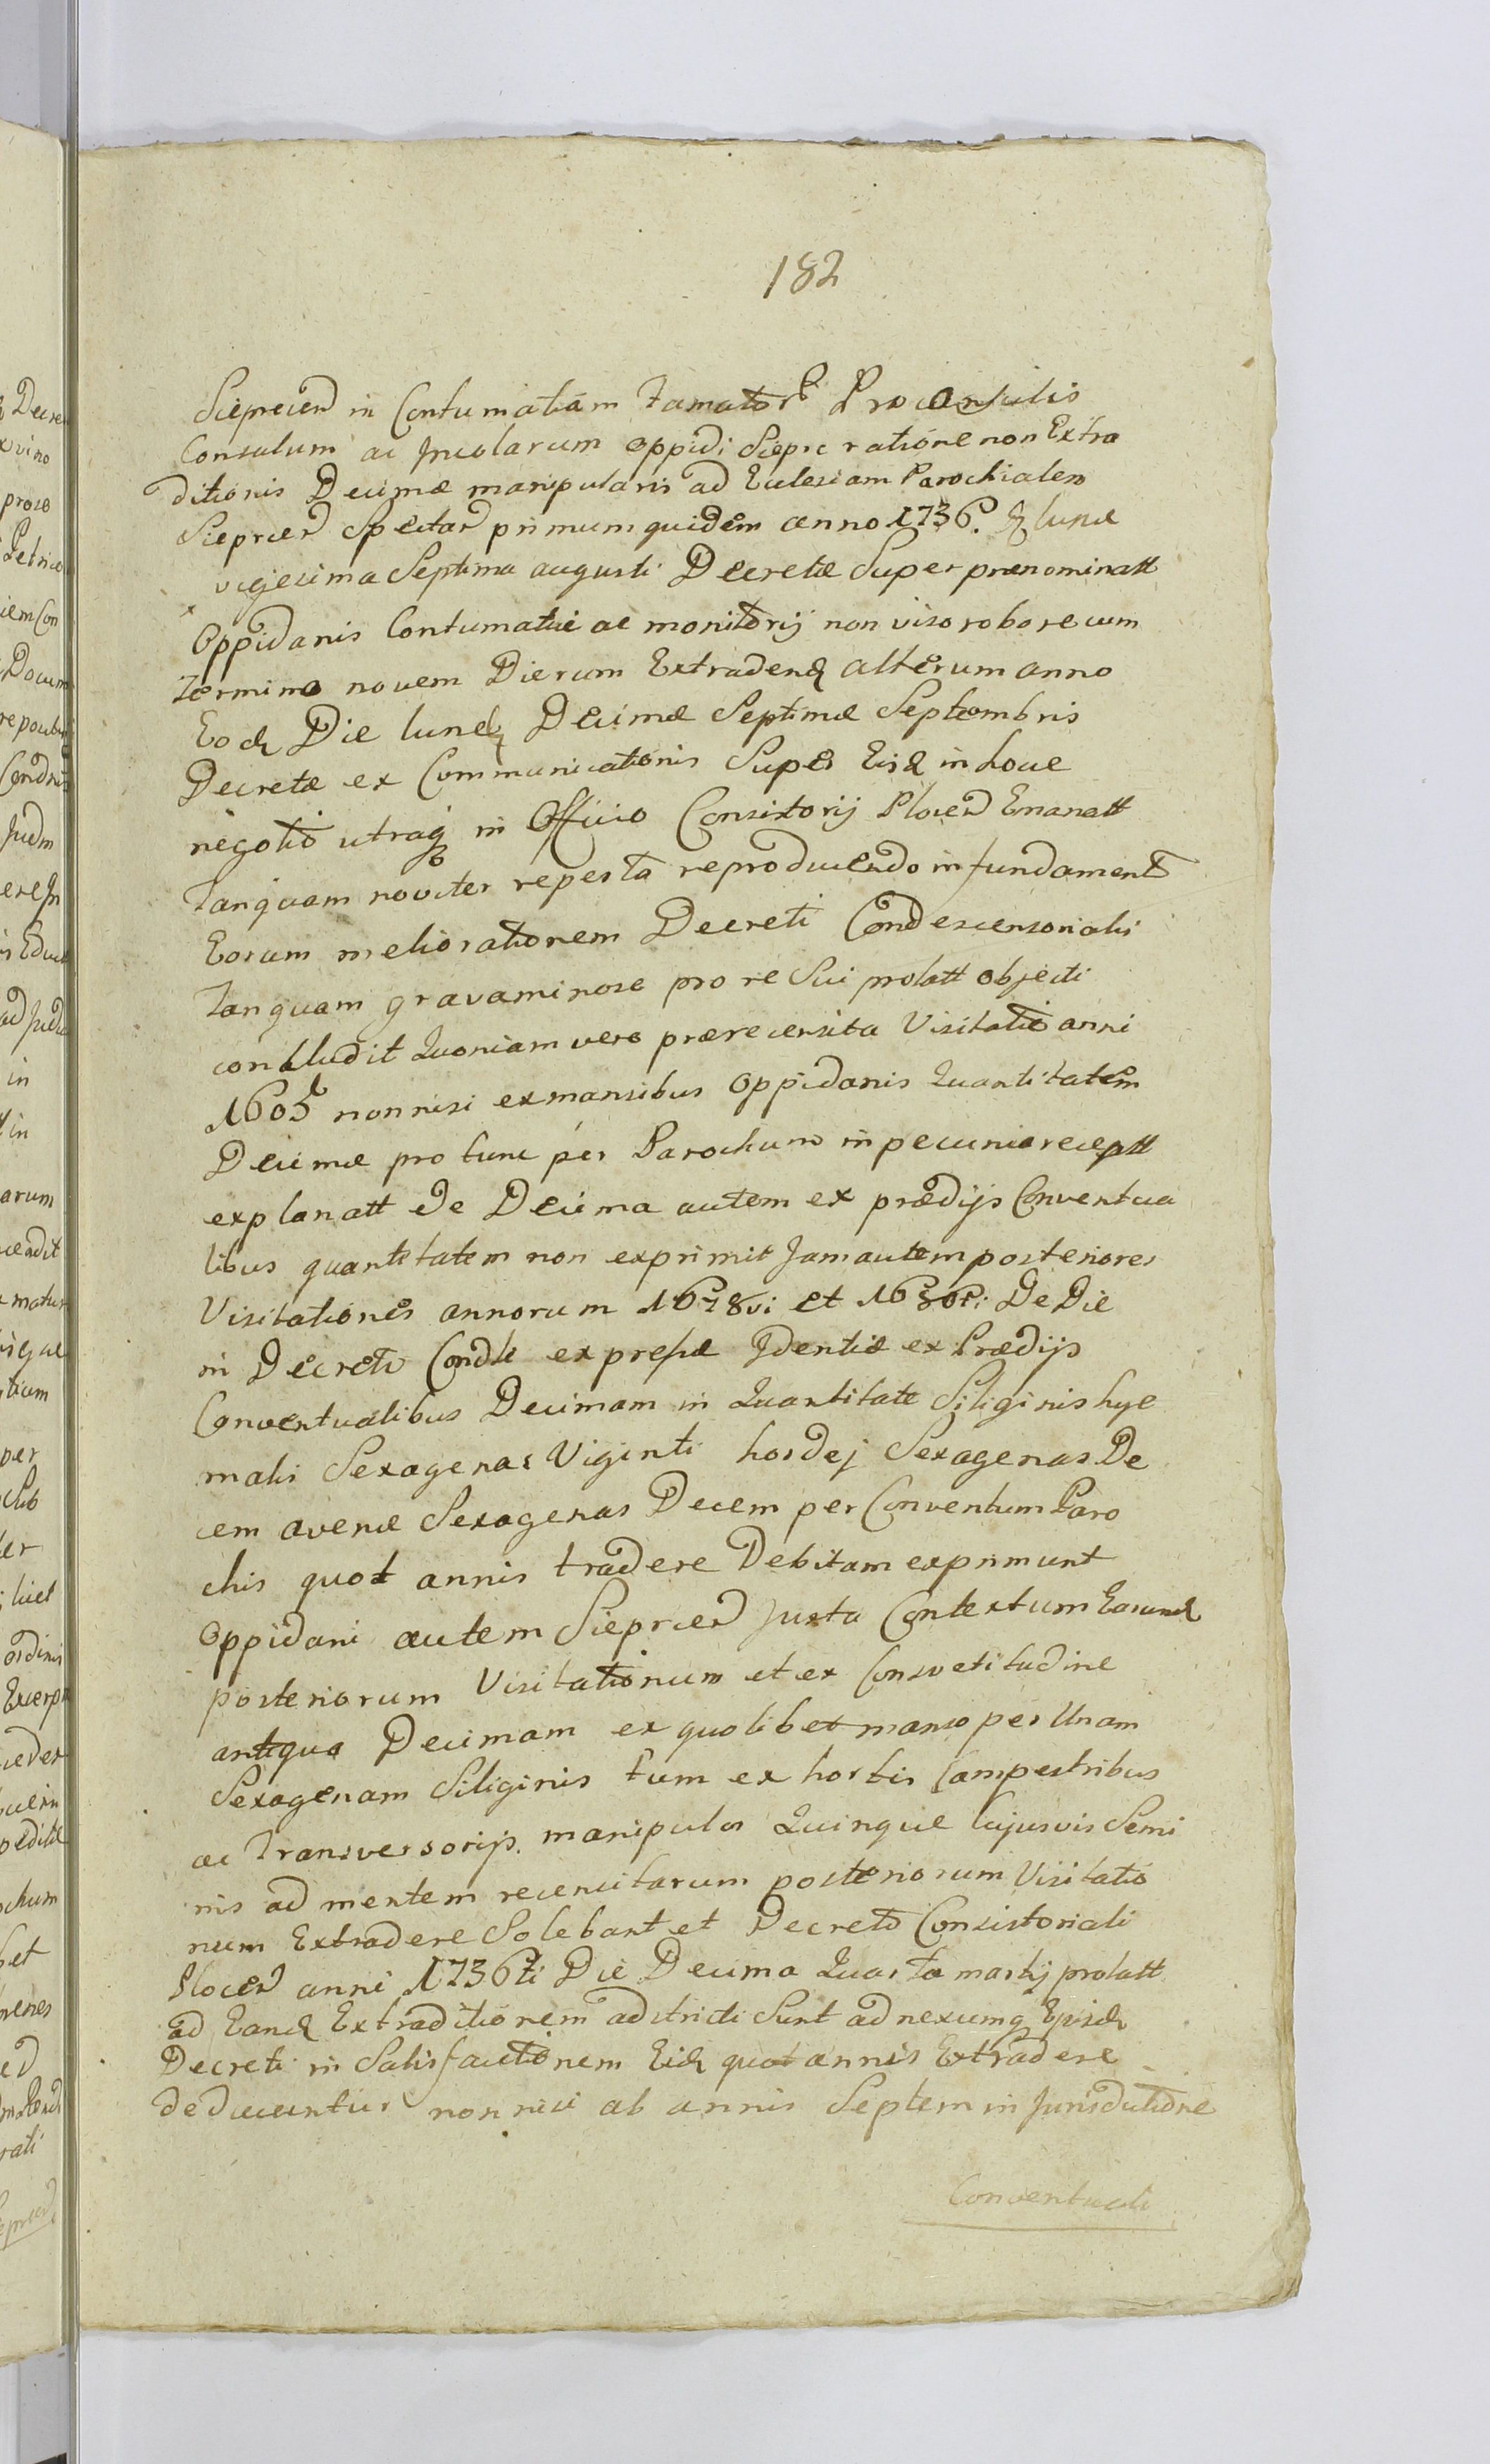 182
Sieprcen in Contumatiam Famator Proconsulis
Consulum ac Incolarum Oppidi Siepre ratione non Extra
ditionis Decimæ manipularis ad Eclesiam Parochialem
Sieprcen Spectan primum quidem anno 1736. Lunæ
vigesima Septima augusti Decretæ Super prænominatt
Oppidanis Contumatiæ ac monitorij non viso robore cum
Termino novem Dierum Extradend alterum anno
Eod Die lunæ Decimæ Septimæ Septembris
Decretæ ex Communicationis Super Eisd in hoce
negotio utraq in Officio Consistorij Plocen Emanatt
Tanquam noviter reperta reproducendo in fundament
Eorum meliorationem Decreti Condescensorialis
Tanquam gravaminose pro re Sui prolatt objecti
concludit Quoniam vero prærecensita Visitatio anni
1605 non nisi ex mansibus Oppidanis Quantitatem
Decimæ pro tunc per Parochum in pecunia receptt
explanatt de Decima autem ex prædijs Conventua
libus quantitatem non exprimit Jam autem posteriores
Visitationes annorum De Die
in Decreto Condli expressæ Identiæ ex Prædijs
Conventualibus Decimam in Quantitate Siliginis hye
malis Sexagenas Viginti hordej Sexagenas De
cem avenæ Sexagenas Decem per Conventum Paro
chis quot annis tradere Debitam exprimunt
Oppidani autem Sieprcen Juxta Contextum Earund
posteriorum Visitationum et ex Consvetitudine
antiqua Decimam ex quolibet manso per Unam
Sexagenam Siliginis tum ex hortis Campestribus
ac Transversorijs. manipulos Quinque Cujusvis Semi
nis ad mentem recensitarum posteriorum Visitatio
num Extradere Solebant et Decreto Consistoriali
Plocen anni 1736ti Die Decima Quarta martij prolatt
ad Eand Extraditionem adstricti Sunt adnexumq Ejusd
Decreti in Satisfactionem Eid quot annis Extradere
deducuntur non nisi ab annis Septem in Jurisdictione
Conventuali